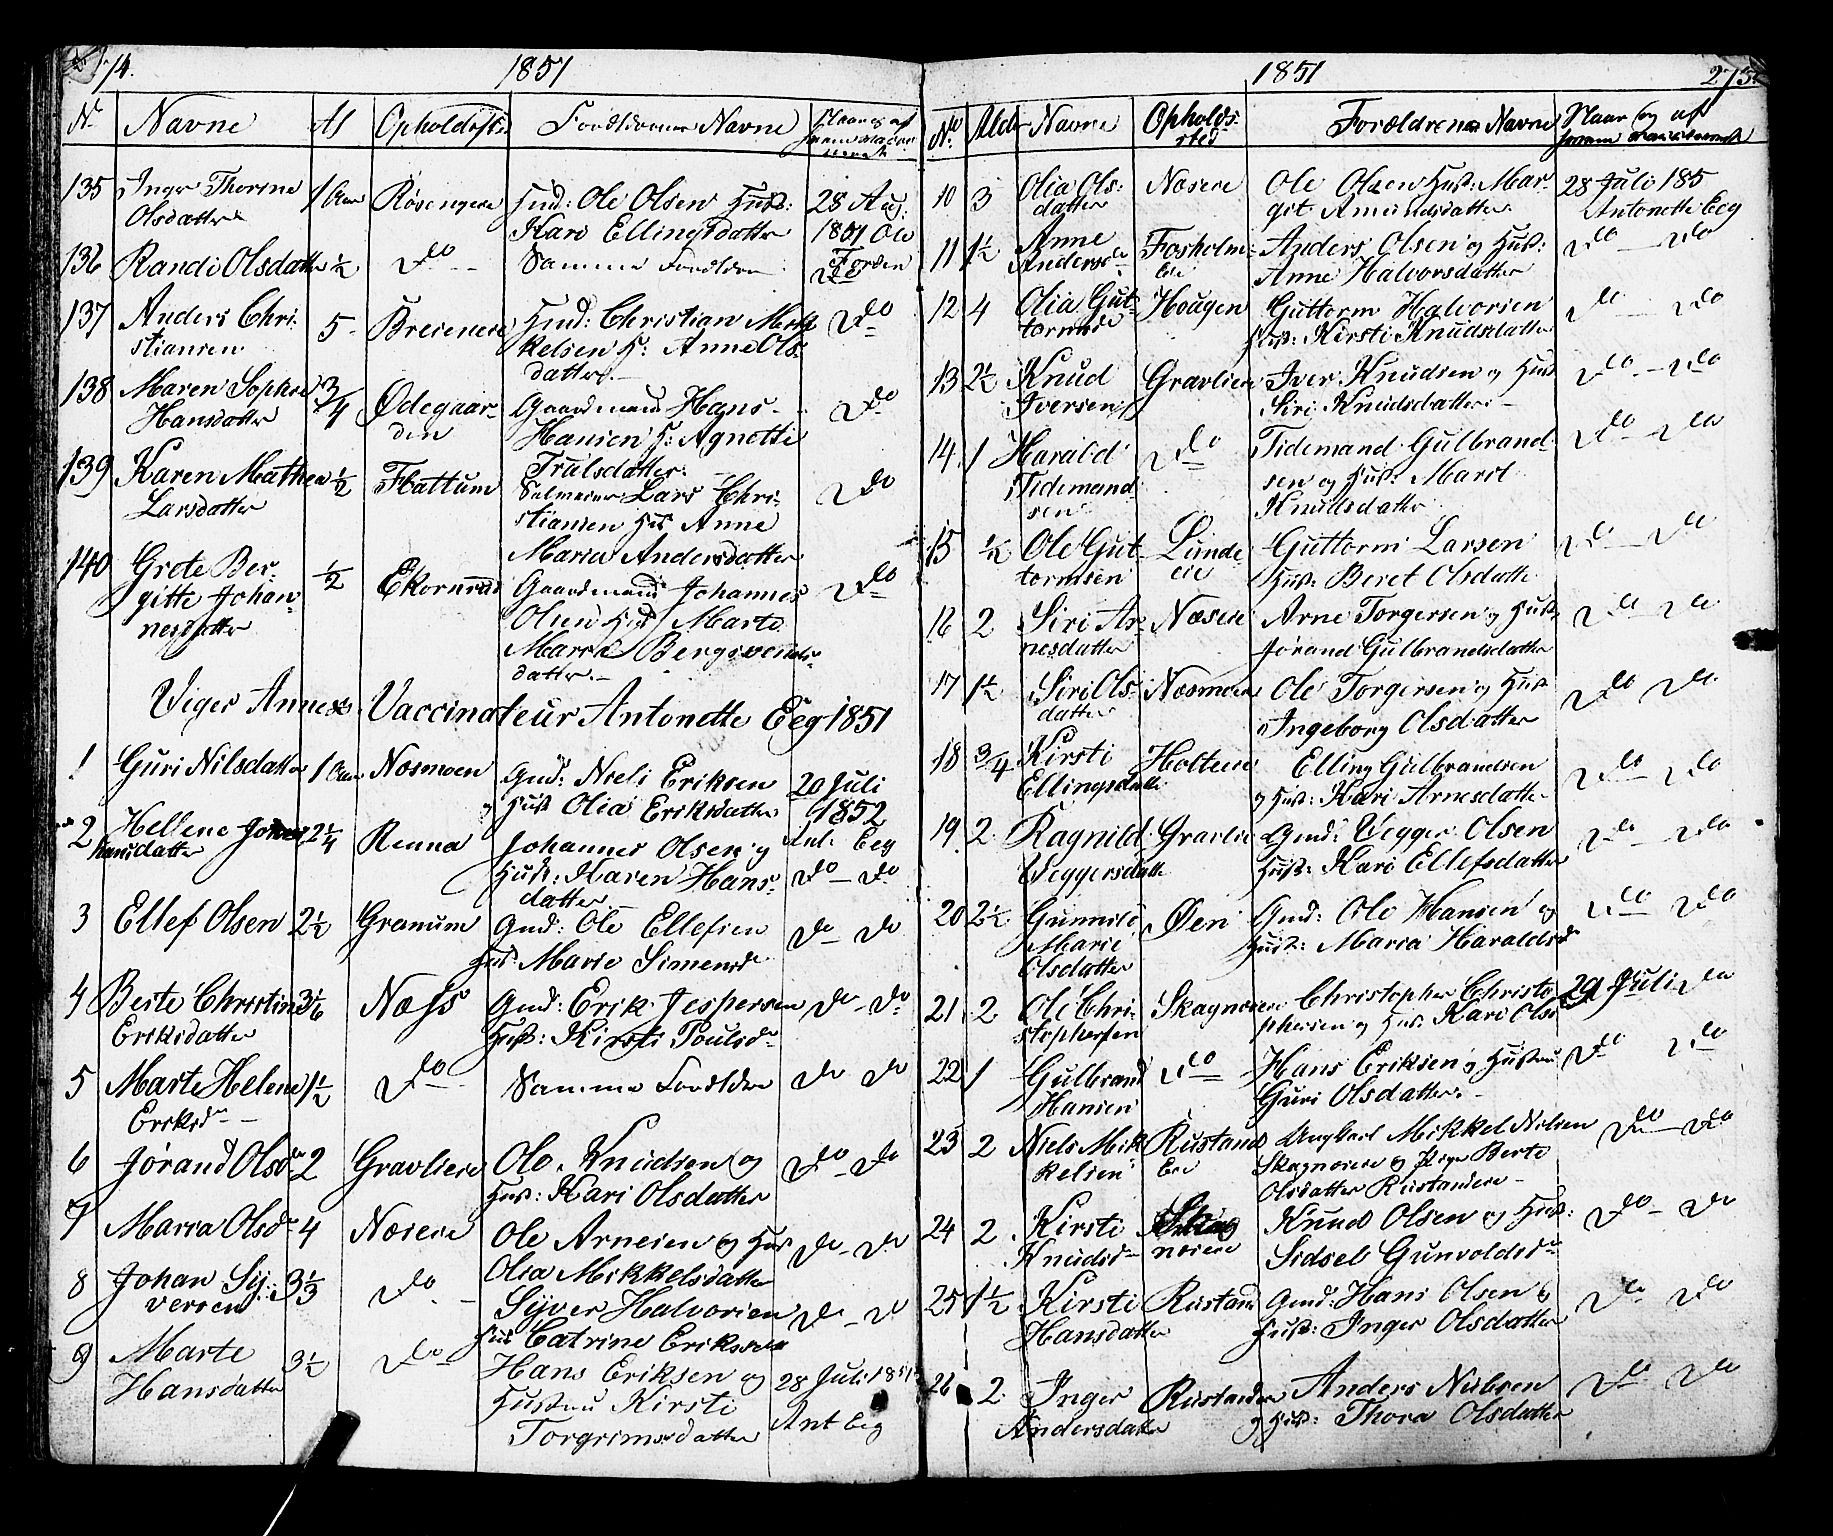 1851
No Navne Al Opholdssted Forældrenes Navne
135 Inger Therine 1 Aar
Olsdatter
Røsengere
Hmd: Ole Olsen Hust:
Kari Ellingsdatter
28 Aug.
1851 Ole
Forden
136 Randi Olsdatter 1/2 Do
Samme Forældre
Do
137 Anders Chri-
stiansen
5 Breienere
Hmd: Christian Mik-
kelsen H: Anne Ols-
datter.
Do
138 Maren Sophie 3/4
Hansdatter
Ødegaar-
den
Gaardmand Hans
Hansen H: Agnette
Trulsdatter
Do
139 Karen Mathea 1/2
Larsdatter
Flattum
Selveier Lars Chri-
stiansen Hus Anne
Maria Andersdatter
Do
140 Grete Ber- 1/2
gitte Johan-
nesdatter
Gaardmand Johannes
Olsen Hus Marte
Maria Bergsvends-
datter.
Do
Viger Annex. Vaccinateur Antonette Eeg 1851
1 Guri Nilsdatter 1 Aar Nosmoen
Gmd: Niels Eriksen
og Hust Olia Eriksdatter
20 Juli
1852
Ant: Eeg
2 Hellene Johan 2 1/4
nesdatter
Renna
Johannes Olsen og
Hust: Karen Hans-
datter
Do Do
3 Ellef Olsen 2 1/2 Granum
Gmd: Ole Ellefsen
Hus: Marie Simensd
Do Do
4 Berte Christine 3 1/6
Eriksdatter
Næss
Gmd: Erik Jespersen
Hust: Kirsti Poulsd
Do Do
5 Marte Helene 1 1/2
Eriksd
Do
Samme Forældre
Do Do
6 Jørand Olsdr 2 Gravliere
Ole Knudsen og
Hust: Kari Olsdatter
Do Do
7 Maria Olsdr 4 Næsere
Ole Arnesen og Hus
Olia Mikkelsdatter
Do Do
8 Johan Sy- 3 1/3
versen
Do
Syver Halvorsen
Hus Catrine Eriksdr
Do Do
9 Marte 3 1/2
Hansdatter
Do
Hans Eriksen og
Hustru Kirsti
Torgrimsdatter
28 Juli 1851
Ant Eeg
1851 275.
No Alder Navne Opholds-
sted
Forældrenes Navne Naar og af
hvem vaccineret
10 3 Olia Ols-
datter
Næsere
Ole Olsen Hust: Mar-
git Amundsdatter.
28 Juli 185
Antonette Eeg
11 1 1/2 Anne
Andersdr
Fosholm-
eie
Anders Olsen og Hust:
Anne Halvorsdatter
Do Do
12 4 Olia Gut-
tormsdr
Hougen
Guttorm Halvorsen
Hust: Kirsti Knudsdatter
Do Do
13 2 1/2 Knud
Iversen
Gravliere
Iver Knudsen og Hust
Siri Knudsdatter
Do Do
14 1 Harald
Tidemand-
sen
Do
Tidemand Gulbrand-
sen og Hust: Marit
Knudsdatter
Do Do
15 1/2 Ole Gut-
tormsen
Lunde
eie
Guttorm Larsen
Hust: Beret Olsdatter
Do Do
16 2 Siri Ar-
nesdatter
Næsere
Arne Torgersen og Hust
Jørand Gulbrandsdatter
Do Do
17 1 1/2 Siri Ols-
datter
Næsmoen
Ole Torgersen og Hust
Ingeborg Olsdatter
Do Do
18 3/4 Kirsti
Ellingsdatter
Holtere
Elling Gulbrandsen
og Hust: Kari Arnesdatter
Do Do
19 2 Ragnild
Veggersdatter
Gravlie
Gmd: Vegger Olsen
Hust: Kari Ellefsdatter
Do Do
20 2 1/2 Gunnild
Marie
Olsdatter
Øen
Gmd: Ole Hansen og
Hust: Maria Haraldsd
Do Do
21 2 Ole Chri-
stophersen
Skagnæsere
Christopher Christo
phersen og Hus: Kari Olsd
29 Juli Do
22 1 Gulbrand
Hansen
Do
Hans Eriksen og Hustru
Guri Olsdatter.
Do Do
23 2 Niels Mik
kelsen
Rustand
Eie
Ungkarl Mikkel Nilsen
Skagnæsere og Pige Berte
Olsdatter Rustandere
Do Do
24 2 Kirsti
Knudsd
Skag
næsere
Knud Olsen og Hust:
Sidsel Gunvoldsd
Do Do
25 1 1/2 Kirsti
Hansdatter
Rustand
Gmd: Hans Olsen og
Hust: Inger Olsdatter
Do Do
26 2 Inger
Andersdatter
Rustandere
Anders Nielsen
og Hust: Thora Olsdatter
Do Do